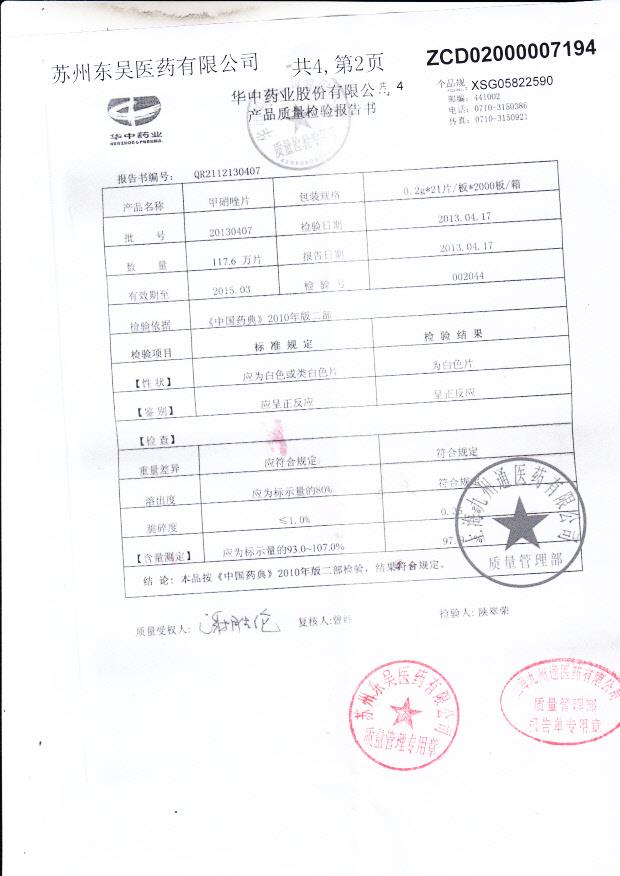 苏州东吴医药有限公司 共4,第2页 ZCD02000007194
华中药业股份有限公司 4 XSG05822590
产品质量检验报告书 邮编: 441002
电话: 0710-3150386
传真: 0710-3150921
华中药业
质量检验专用章
报告书编号: QR2112130407
产品名称 甲硝唑片 包装规格 0.2g*21片/板*2000板/箱
批 号 20130407 检验日期 2013.04.17
数 量 117.6 万片 报告日期 2013.04.17
有效期至 2015.03 检 验 号 002044
检验依据 《中国药典》2010年版二部
检验项目 标 准 规 定 检 验 结 果
【性 状】 应为白色或类白色片 为白色片
【鉴 别】 应呈正反应 呈正反应
【检 查】
重量差异 应符合规定 符合规定
溶出度 应为标示量的80% 符合规
脆碎度 ≤1.0% 0.
【含量测定】 应为标示量的93.0~107.0% 97.
结 论: 本品按《中国药典》2010年版二部检验, 结果符合规定。
上海九州通医药有限公司
质量管理部
质量受权人: 复核人: 曾 检验人: 陕翠荣
苏州东吴医药有限公司
质量管理专用章
上海九州通医药有限公司
质量管理部
报告单专用章